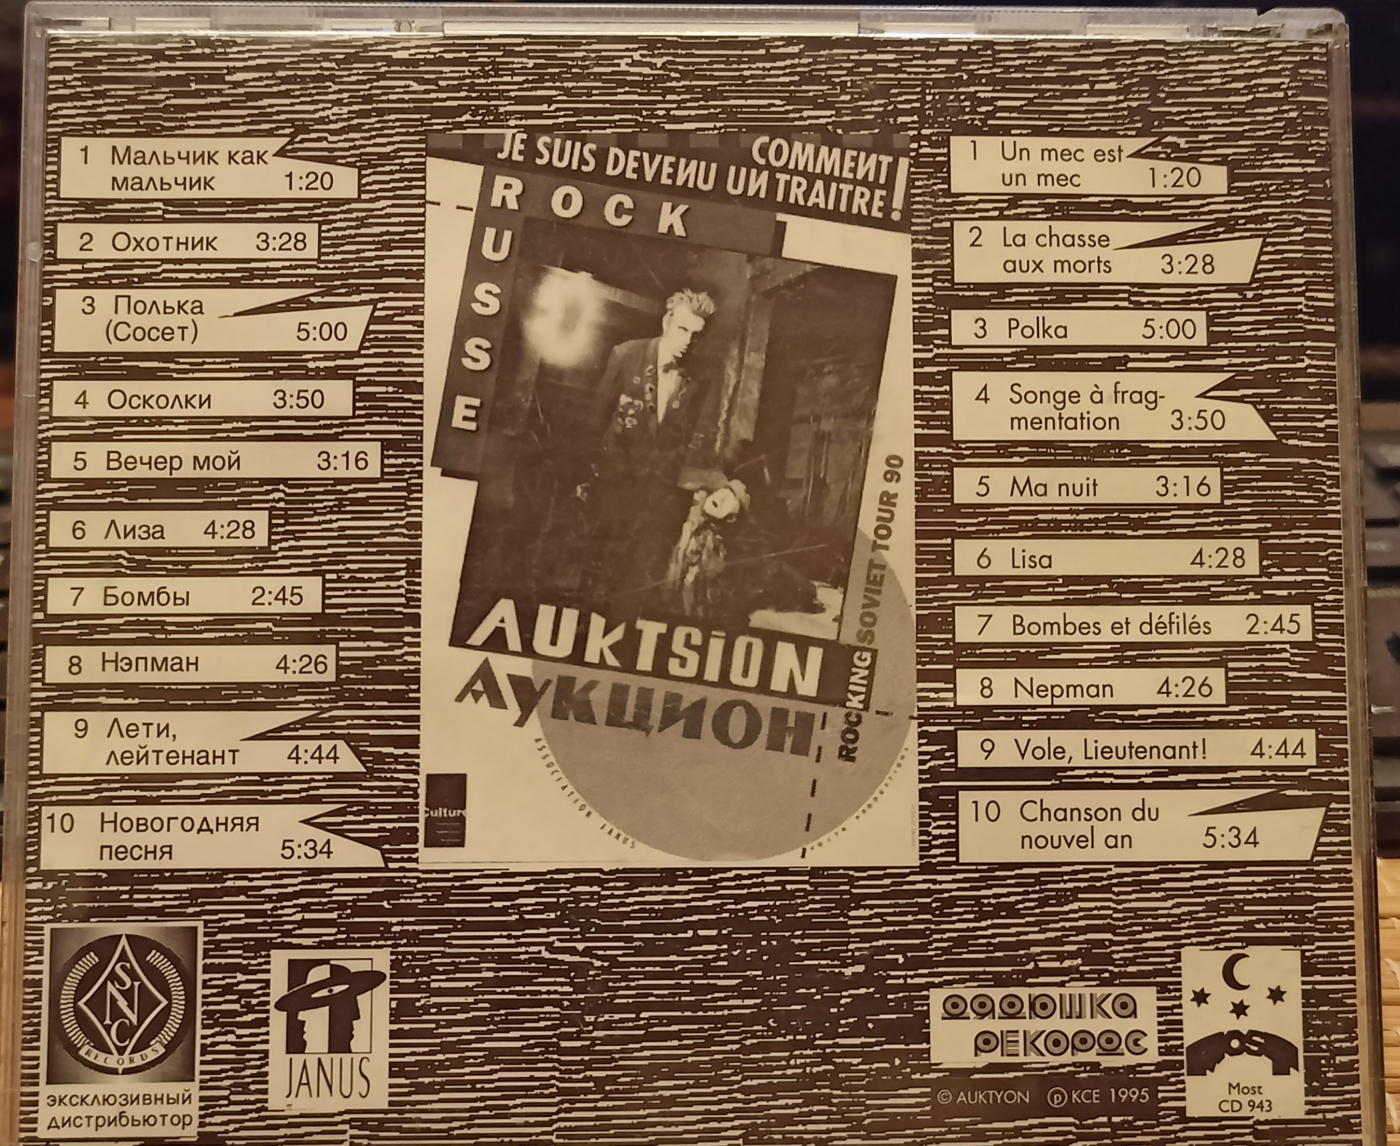 1 Мальчик как
мальчик 1:20
2 Охотник 3:28
3 Полька
(Сосет) 5:00
4 Осколки 3:50
5 Вечер мой 3:16
6 Лиза 4:28
7 Бомбы 2:45
8 Нэпман 4:26
9 Лети,
лейтенант 4:44
10 Новогодняя
песня 5:34
COMMENT
JE SUIS DEVENU UN TRAITRE!
ROCK
RUSSE
ROCKING SOVIET TOUR 90
AUKTSION
АУКЦИОН
ASSOCIATION JANUS
Culture
1 Un mec est
un mec 1:20
2 La chasse
aux morts 3:28
3 Polka 5:00
4 Songe à frag-
mentation 3:50
5 Ma nuit 3:16
6 Lisa 4:28
7 Bombes et défilés 2:45
8 Nepman 4:26
9 Vole, Lieutenant! 4:44
10 Chanson du
nouvel an 5:34
SNC
RECORDS
эксклюзивный
дистрибьютор
JANUS
ДЯДЮШКА
РЕКОРДС
© AUKTYON ℗ KCE 1995
Most
CD 943